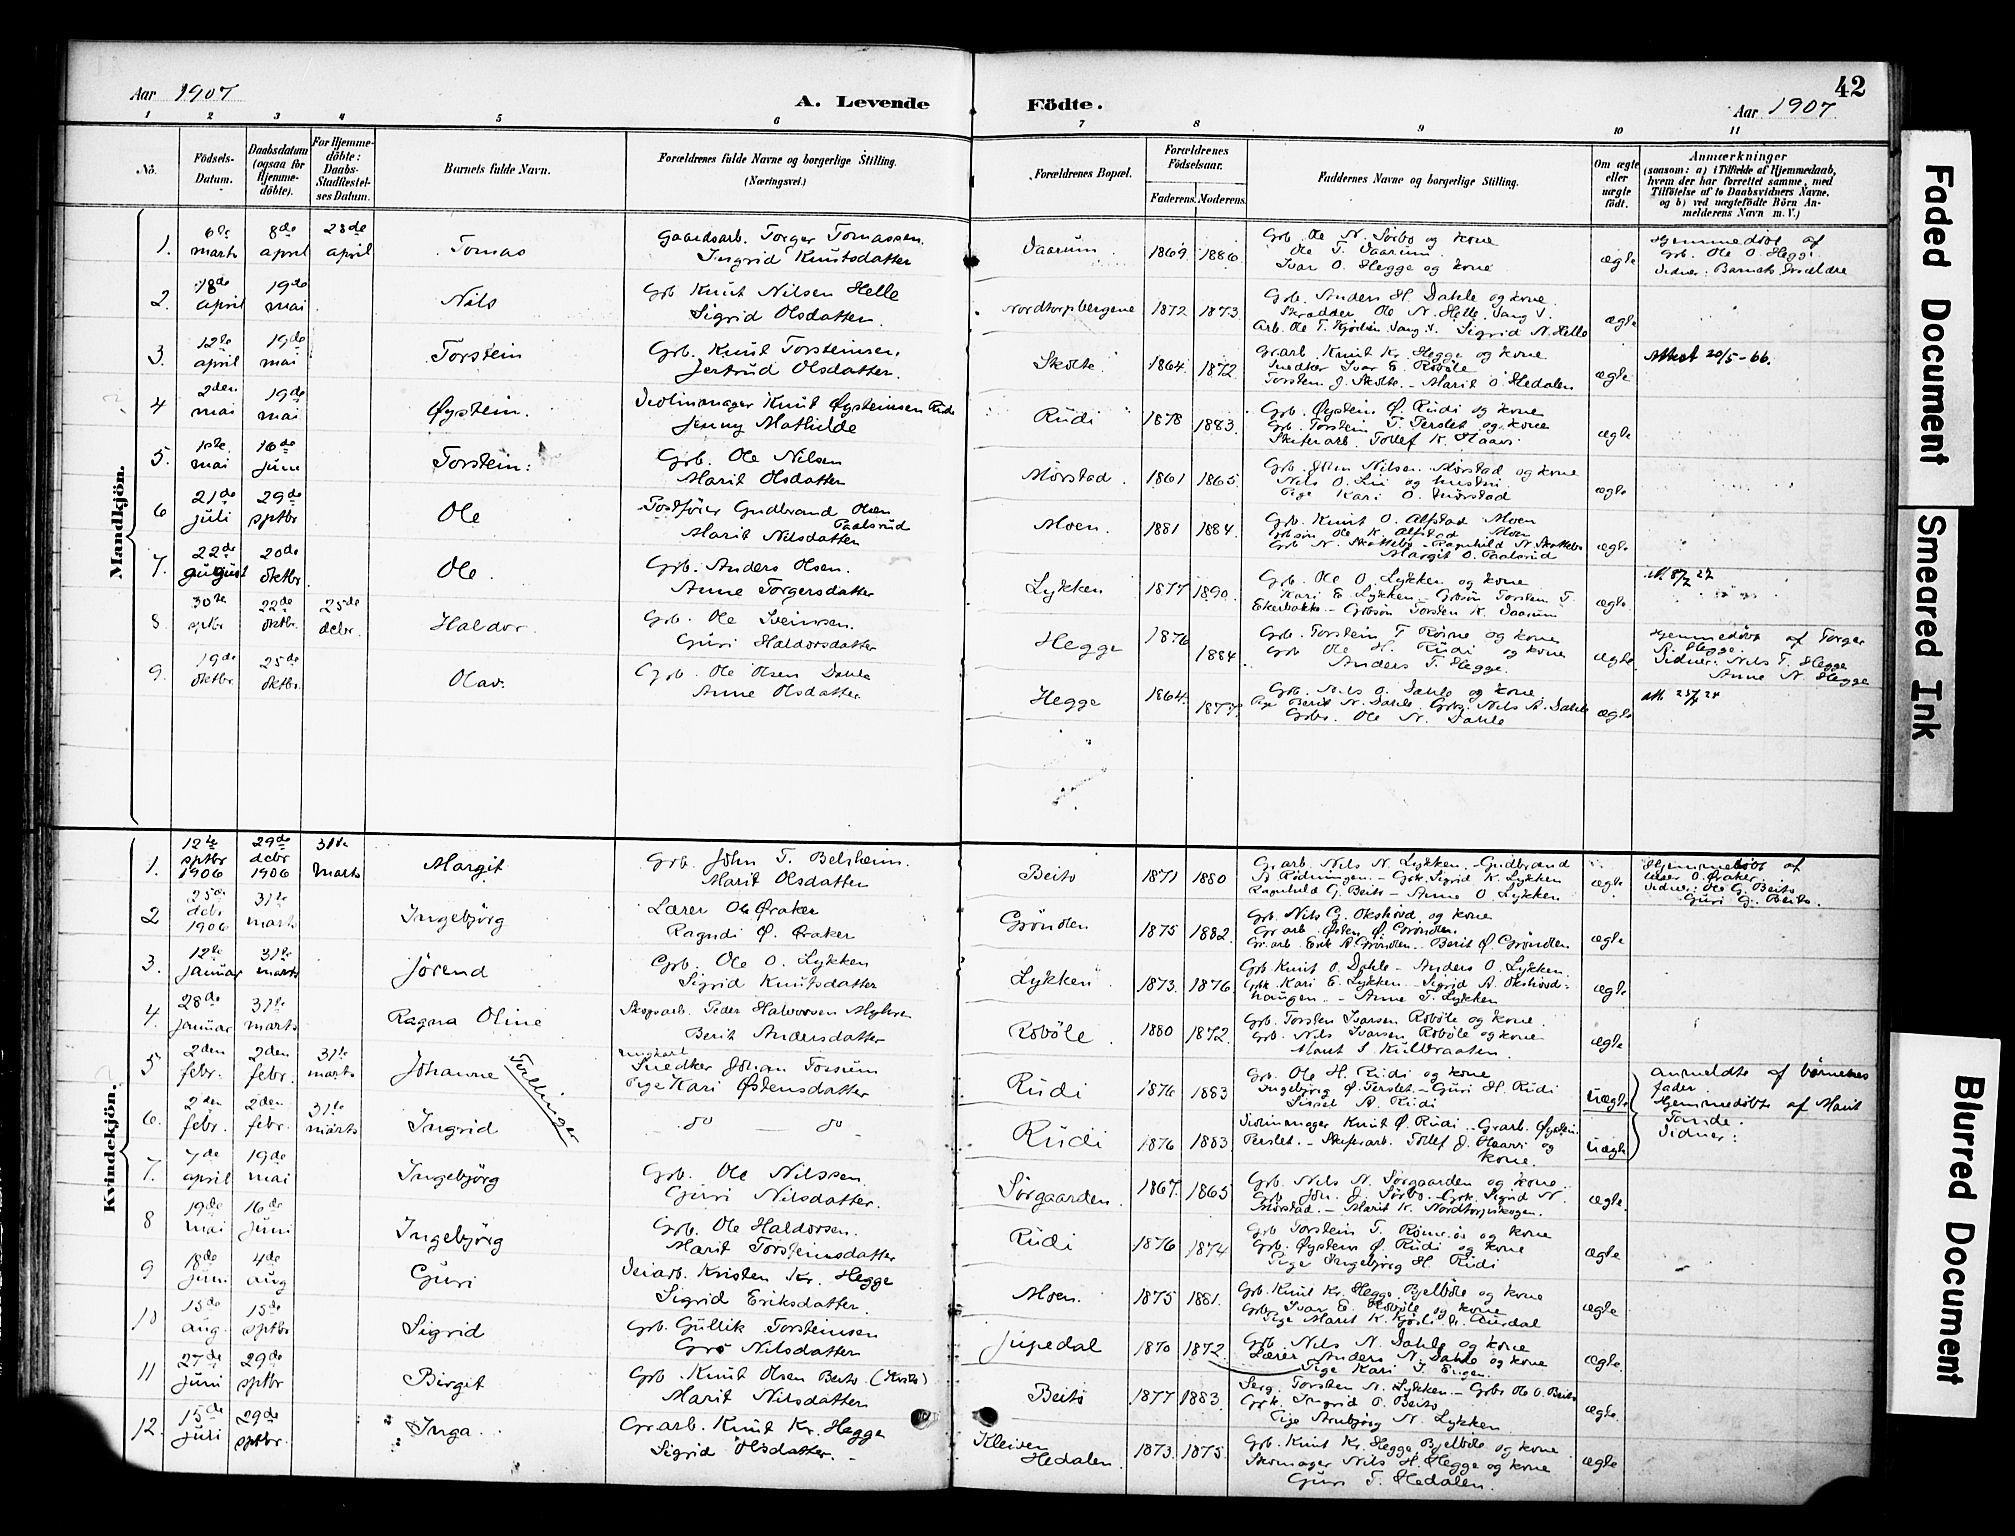 42
Aar 1907
A. Levende Födte.
Aar 1907
1 2 3 4 5 6 7 8 9 10 11
No.
Födsels-Datum.
Daabsdatum (ogsaa for Hjemme-döbte).
For Hjemme-döbte: Daabs-Stadfæstel-ses Datum.
Barnets fulde Navn.
Forældrenes fulde Navne og borgerlige Stilling.
(Næringsvei.)
Forældrenes Bopæl.
Forældrenes Födselsaar.
Faderens. Moderens.
Faddernes Navne og borgerlige Stilling.
Om ægte eller uægte födt.
Anmærkninger
(saasom: a) i Tilfælde af Hjemmedaab,
hvem der har forrettet samme, med
Tilföielse af to Daabsvidners Navne.
og b) ved uægtefödte Börn An-
melderens Navn m. V.)
Mandkjön.
1. 6te marts 8de april 28de april Tomas
Gaardsarb. Torger Tomassen.
Ingrid Knutsdatter
Vaarum 1869. 1886.
Grb. Ole N. Sørbo og kone
Ole T. Vaarum.
Ivar O. Hegge og kone
ægte
Hjemmedøbt af
Grb. Ole O. Hegge
Vidner: Barnets Forældre
2. 18de april 19de mai Nils
Grb Knut Nilsen Helle
Sigrid Olsdatter.
Nordtorpbergene 1872 1873.
Grb. Anders H. Dahle og kone.
Skrædder Ole N. Helle, Vang V.
Arb. Ole T. Kjøslien Vang V. Sigrid N. Helle
ægte
3. 12te april 19de mai Torstein
Grb. Knut Torsteinsen.
Jertrud Olsdatter.
Skolte 1864. 1872.
Grarb. Knut Kr. Hegge og kone
Snedker Ivar E. Robøle
Torsten J. Skolte. - Marit O. Hedalen
ægte
Attest 20/5-66.
4 2den mai 19de mai Øystein.
Violinmager Knut Øysteinsen Rudi
Jenny Mathilde
Rudi 1878 1883.
Grb. Øystein Ø. Rudi og kone
Grb. Torstein T. Terslet og kone
Skiferarb. Tollef K. Haavi
ægte
5. 1ste mai 16de juni Torstein.
Grb. Ole Nilsen
Marit Olsdatter
Mørstad. 1861 1865.
Grb. John Nilsen Mørstad og kone
Nils O. Lui og hustru
Pige Kari O. Mørstad
ægte
6 21de juli 29de sptbr Ole
Postfører Gudbrand Olsen Paalsrud
Marit Nilsdatter
Moen. 1881 1884.
Grb. Knut O. Alfstad Moen
Grbsøn Ole K. Alfstad Moen
Grb N. Skattebo - Ragnhild N. Skattebo
Margit O. Paalsrud
ægte
7. 22de august 20de oktbr. Ole.
Grb. Anders Olsen.
Anne Torgersdatter
Lykken 1877 1890.
Grb. Ole O. Lykken og kone
Kari E. Lykken - Grbsøn Torsten T.
Ekerbakke - Grbsøn Torsten K. Vaarum
ægte
8. 30te sptbr 22de oktbr. 25de dcbr. Haldor.
Grb. Ole Sveinsen.
Guri Haldorsdatter
Hegge 1876 1884.
Grb. Torstein T. Røine og kone
Grb Ole H. Rudi og kone
Anders T. Hegge
ægte
Hjemmedøbt af Torger
Hegge.
Vidner: Nils T. Hegge
Anne N. Hegge
9. 19de oktbr. 25de oktbr. Olav.
Grb. Ole Olsen Dahle
Anne Olsdatter
Hegge 1864. 1877.
Grb. Nils O. Dahle og kone
Pige Berit N. Dahle. Grbs. Nils A. Dahle
Grbs. Ole N. Dahle
ægte
Kvindekjön.
1. 12te sptbr 1906 29de dcbr 1906 31te marts Margit
Grb. John T. Belsheim.
Marit Olsdatter
Beito 1871 1880
Grarb. Nils N. Lykken - Gudbrand
A. Rødningen. - Grk. Sigrid K. Lykken
Ragnhild G. Beito - Anne O. Lykken
ægte
Hjemmedøbt af
lærer O. Øraker.
Vidner: Ole G. Beito
Guri G. Beito.
2 25de dcbr 1906 31te marts Ingebjørg
Lærer Ole Øraker
Ragndi Ø. Øraker
Grønolen 1875 1882.
Grb. Nils G. Okshovd og kone
Grarb. Østen Ø. Grønolen.
Grarb. Erik A. Grønolen - Berit Ø. Grønolen
ægte
3. 12te januar 31te marts Jørend
Grb. Ole O. Lykken
Sigrid Knutsdatter
Lykken 1873. 1876.
Grb. Knut O. Dahle - Anders O. Lykken.
Grk. Kari E. Lykken - Sigrid A. Okshovd-
haugen. - Anne T. Lykken
ægte
4. 28de januar 31te marts Ragna Oline
Skogsarb. Peder Halvorsen Myhren
Berit Andersdatter
Robøle 1880 1872.
Grb. Torsten Ivarsen Robøle og kone.
Grb. Nils Ivarsen Robøle og kone
Marit I. Kulbraaten.
ægte
5 2den febr. 2den febr. 31te marts Johanne Tvillinger
ungkarl
Snedker Johan Fossum
Pige Kari Østensdatter
Rudi 1876 1883
Grb. Ole H. Rudi og kone
Ingebjørg Ø. Terslet - Guri H. Rudi
Sissel A. Rudi
uægte
Anmeldte af børnenes
fader.
Hjemmedøbte af Marit
Vidner:
6. 2den febr. 2den febr. 31te marts Ingrid
do - do
Rudi 1876 1883
Violinmager Knut Ø. Rudi - Grarb. Øystein
Terslet - Skiferarb. Tollef J. Haavi og
kone.
uægte
7. 7de april 19de mai Ingebjørg
Grb. Ole Nilssen.
Guri Nilsdatter.
Sørgaarden. 1867. 1865
Grb. Nils N. Sørgaarden og kone.
Grb. Jon J. Sørbo. Grk. Sigrid N.
Mørstad. - Marit K. Nordtorpskogen.
ægte.
8 19de mai 16de juni Ingebjørg
Grb. Ole Haldorsen.
Marit Torsteinsdatter
Rudi 1876 1874
Grb Torstein T. Røine og kone
Grb. Øystein Ø. Rudi og kone
Pige Ingebjørg H. Rudi
ægte
9 18de juni 4de aug Guri
Veiarb. Kristen Kr. Hegge
Sigrid Eriksdatter.
Moen. 1875 1881.
Grb. Knut Kr. Hegge Bjelbøle og kone
Grb. Ivar E. Robøle og kone
Pige Marit K. Kjøsli N. Aurdal
ægte
10 15de aug. 15de sptbr Sigrid
Grb. Gullik Torsteinsen
Gro Nilsdatter
Jupedal 1870 1872
Grb Nils N. Dahle og kone
Lærer Anders N. Dahle og kone
Pige Kari T. Engen.
ægte.
11 27de juni 29de sptbr Birgit
Grb. Knut Olsen Beito (Kvito)
Marit Nilsdatter
Beito 1877 1883.
Serg. Torsten N. Lykken. - Grbs Ole O. Beito
Grk. Ingrid O. Beito
Pige Arnbjørg N. Lykken
ægte.
12. 15de juli 29de sptbr. Inga
Grarb. Knut Kr. Hegge
Sigrid Olsdatter.
Kleiven Hedalen. 1873. 1875.
Grb. Knut Kr. Hegge Bjelbøle og kone
Skomager Nils H. Hegge og kone
Guri T. Hedalen.
ægte
Faded Document
Smeared Ink
Blurred Document